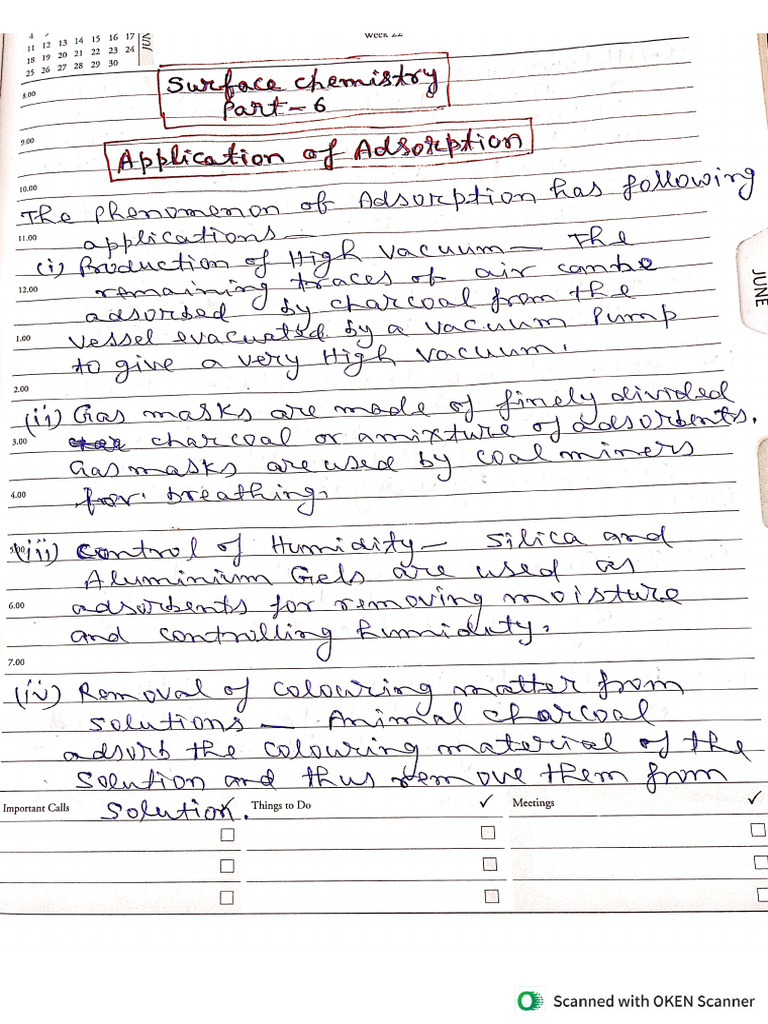 4
11 12 13 14 15 16 17
18 19 20 21 22 23 24
25 26 27 28 29 30
8.00
Surface chemistry
Part-6
9.00
Application of Adsorption
10.00
The phenomenon of Adsorption has following
11.00
applications—
(i) Production of High vacuum— The
12.00
remaining traces of air canbe
adsorbed by charcoal from the
1.00
vessel evacuated by a vacuum Pump
to give a very High vacuum.
2.00
(ii) Gas masks are made of finely divided
3.00
charcoal or amixture of adsorbents.
Gas masks are used by coal miners
4.00
for breathing.
5.00
(iii) Control of Humidity— Silica and
Aluminium Gels are used as
6.00
adsorbents for removing moisture
and controlling humidity.
7.00
(iv) Removal of colouring matter from
solutions— Animal charcoal
adsorb the colouring material of the
solution and thus remove them from
solution.
Important Calls Things to Do ✓ Meetings ✓
JUNE
Scanned with OKEN Scanner